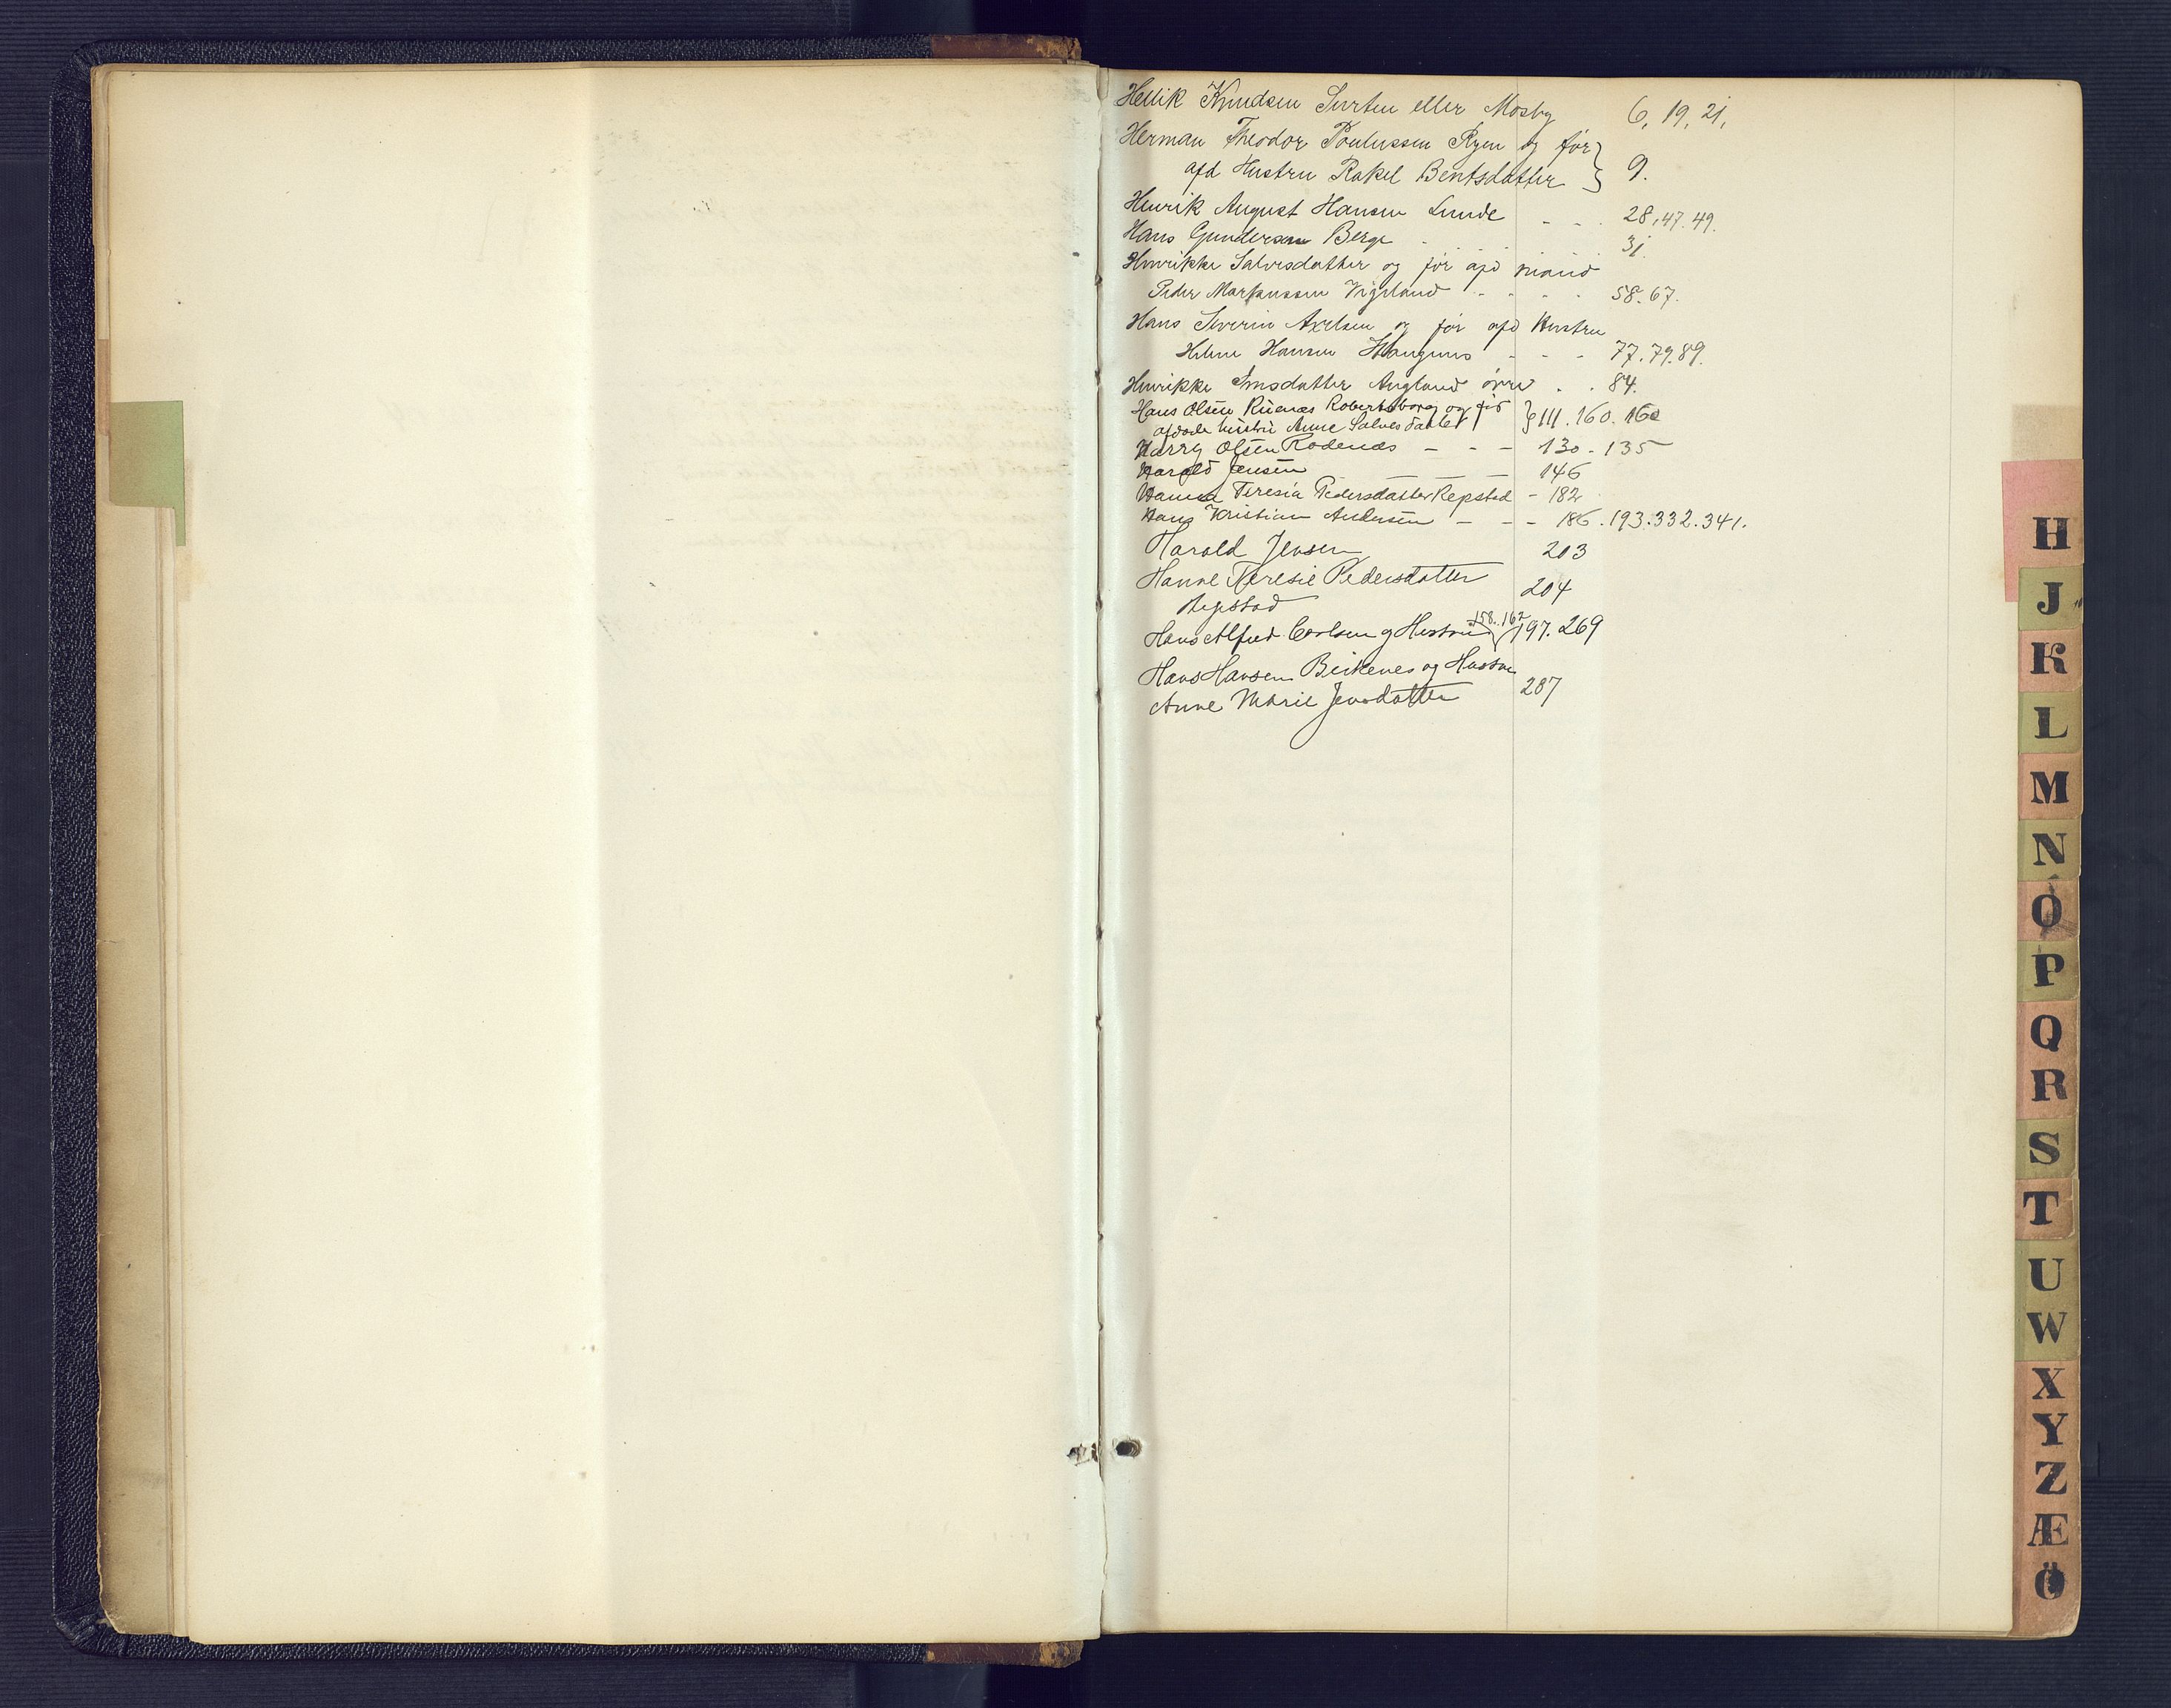 Hellik Knudsen eller Mosby 6, 19, 21,
Herman Theodor Poulussen Ryen og før
afd Hustru Rakel Bentsdatter } 9.
Henrik August Hansen Lunde - - - 28, 47. 49.
Hans Gundersen Berge 31.
Henrikke Salvesdatter og før afd mand
Peder Markussen Vigeland - - - - 58. 67.
Hans Severin Axelsen og før afd Hustru
Helene Hansen - - - 77. 79. 89.
Henrikke Augland øvre . . 84.
Hans Olsen Robertsborg og før
afdøde hustru Anne Salvesdatter } 111. 160. 160
Harry Olsen Rodenæs - - - 130 - 135
Harald Jensen - - 146
Hanna Teresia Pedersdatter Repstad - 182
Hans Kristian Andersen - - - 186. 193. 332. 341.
Harald Jensen 203
Hanne Teresie Pedersdatter
Repstad 204
Hans Alfred Carlsen og Hustru 158. 162 197. 269
Hans Hansen Birkenes og Hustru
Anne Marie Jensdatter 287
H
J
K
L
M
N
O
P
Q
R
S
T
U
W
X
Y
Z
Æ
Ö